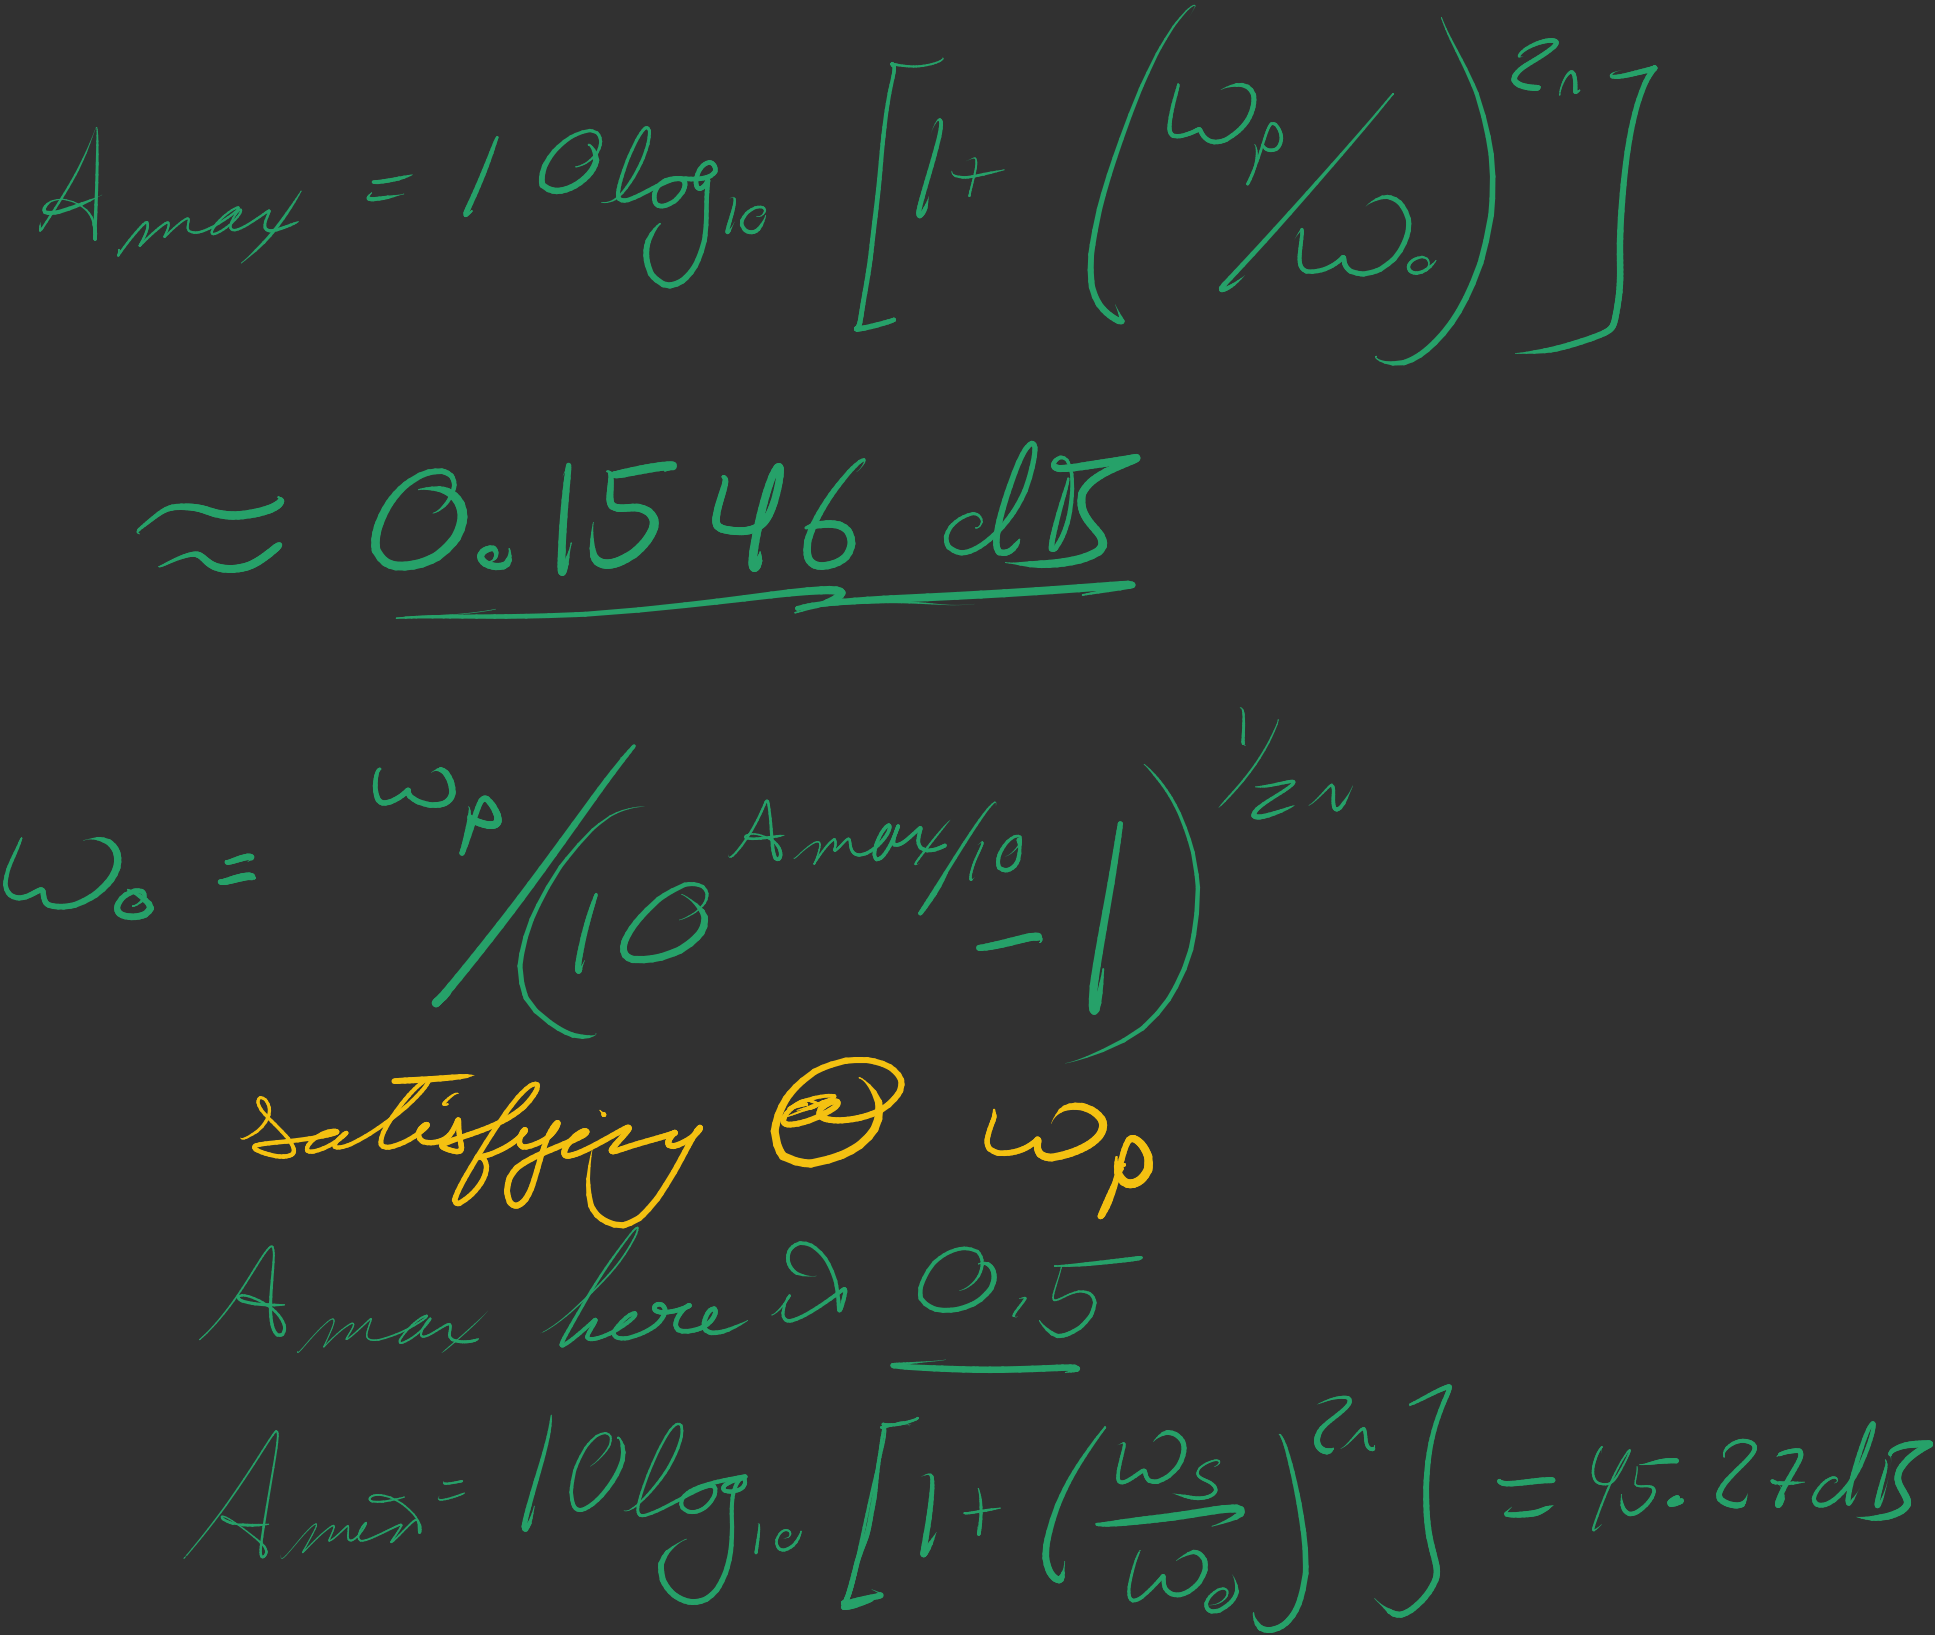 A_max = 10log_10 [1 + (ω_p/ω_o)^2n]
≈ 0.1546 dB
ω_o = ω_p/(10^A_max/10 - 1)^1/2n
satisfying @ ω_p
A_max here is 0.5
A_min = 10log_10 [1 + (ω_s/ω_o)^2n] = 45.27dB